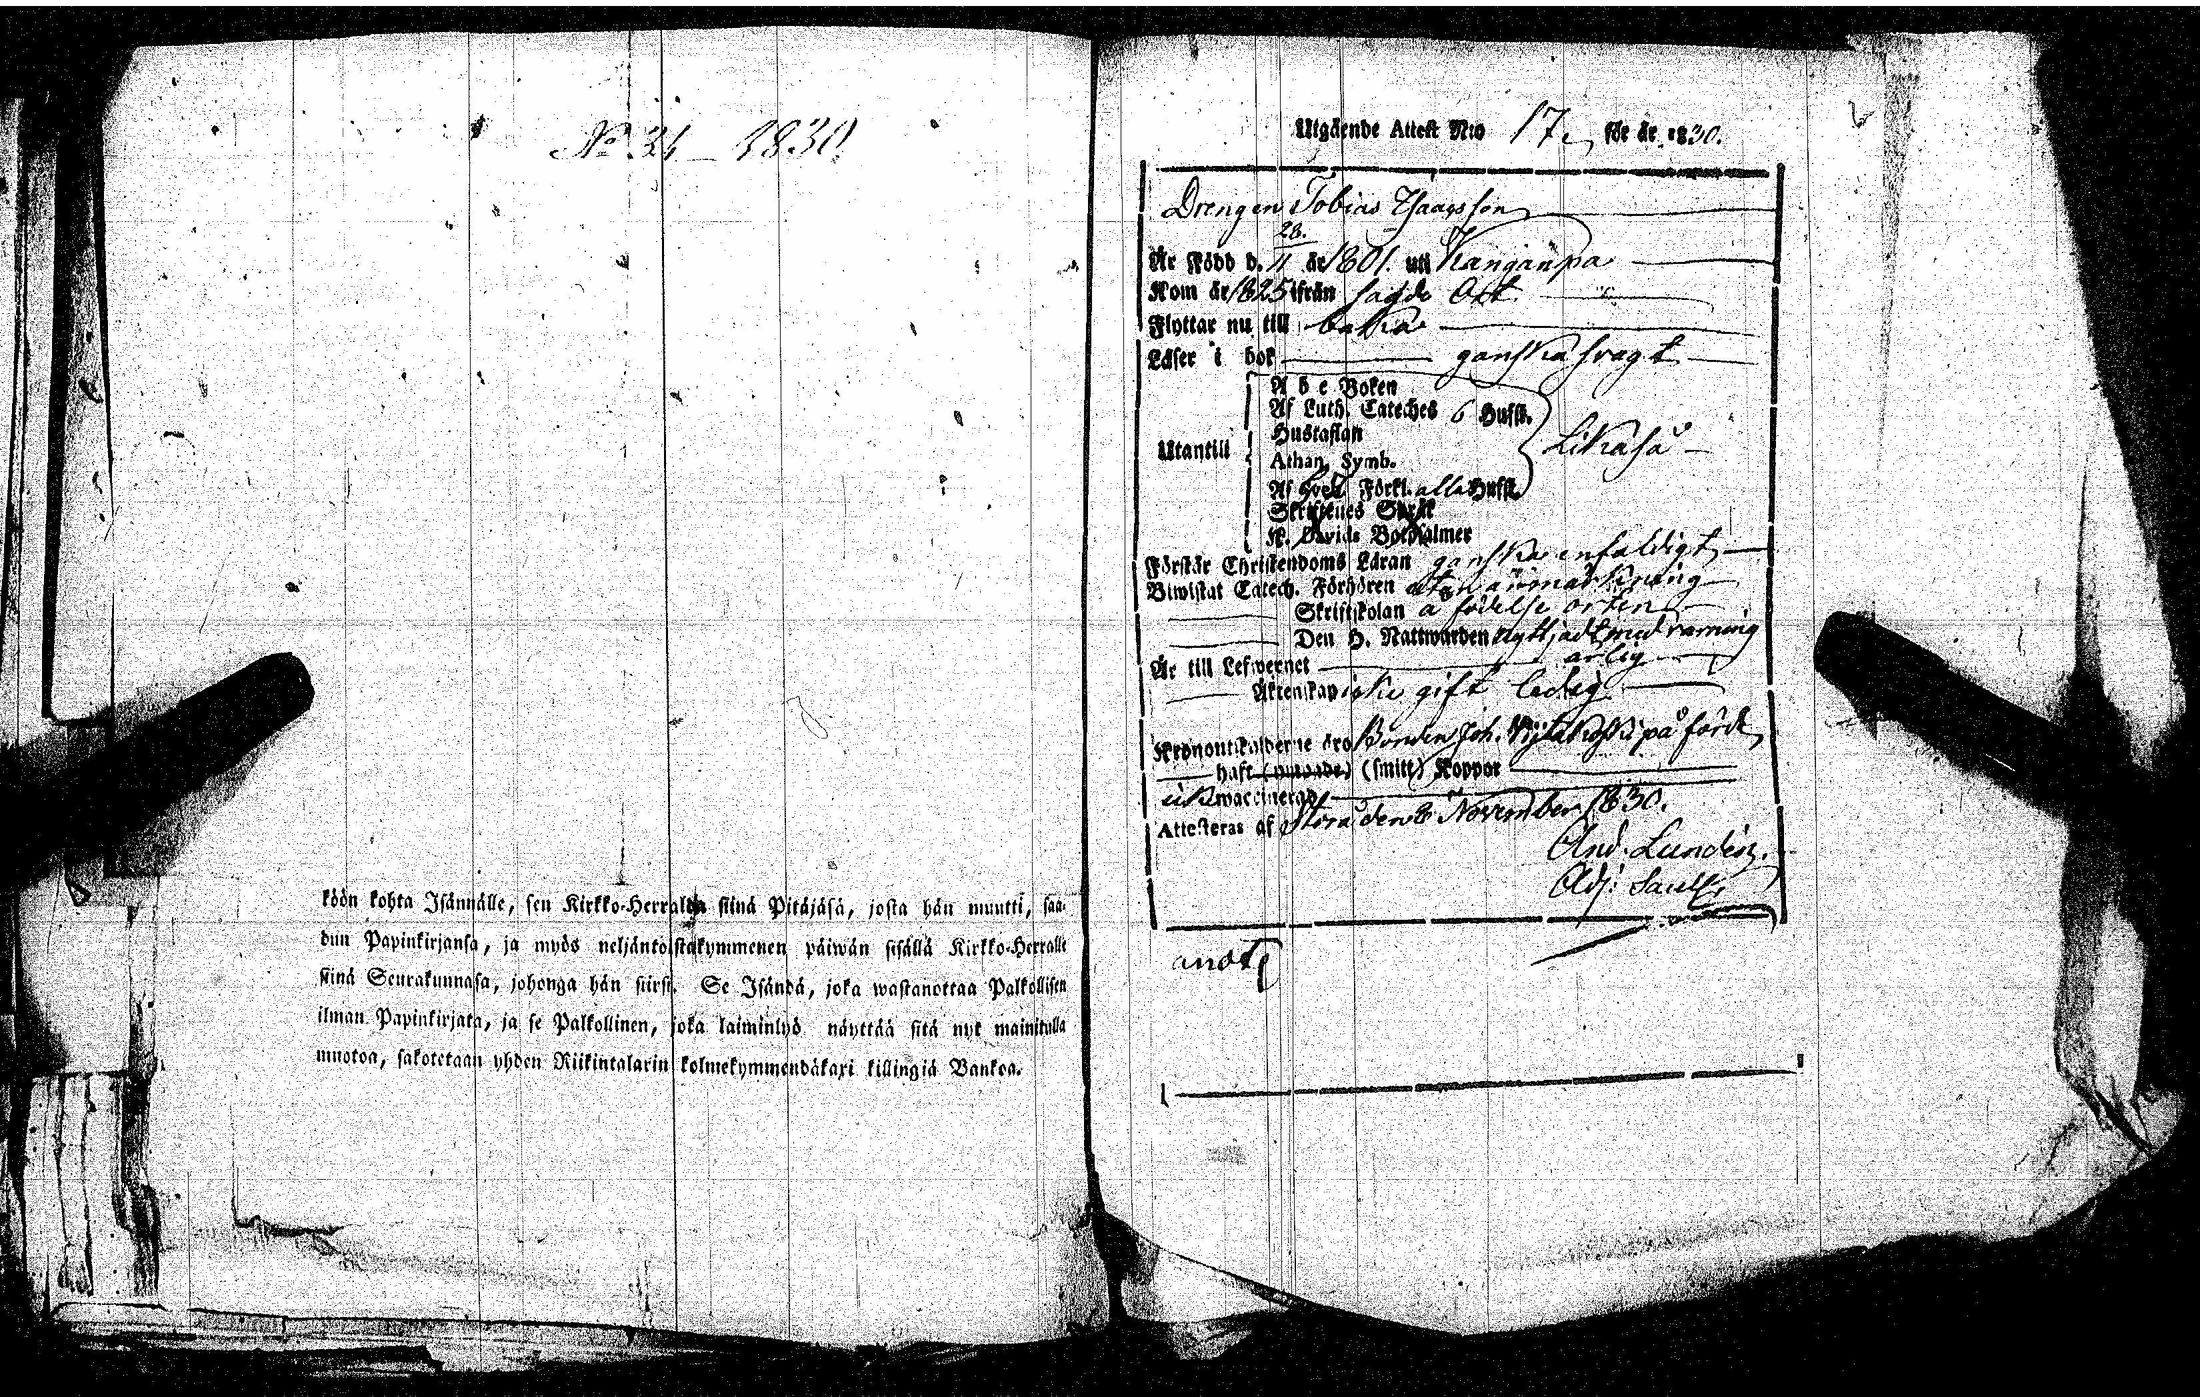 No 31 — 1830
köön kohta Isännälle, sen Kirkko-Herralda siinä Pitäjäsä, josta hän muutti, saa-
dun Papinkirjansa, ja myös neljäntoistakymmenen päiwän sisällä Kirkko-Herralle
siinä Seurakunnasa, johonga hän siirsi. Se Isändä, joka wastanottaa Palkollisen
ilman Papinkirjata, ja se Palkollinen, joka laiminlyö näyttää sitä nyt mainitulla
muotoa, sakotetaan yhden Riikintalarin kolmekymmendäkaxi killingiä Bankoa.
Utgående Attest N:o 17. för år 1830.
Drengen Tobias Isaacsson
28.
Är Född d. 11 år 1801. uti Kangänpä
Kom år 1825 ifrån sagde Ort
Flyttar nu till baka
Läser i bok ganska svagt
Utantill
A b c Boken
Af Luth. Cateches 6 Hufst.
Hustaflan
Athan. Symb.
Likaså
Af Sveb. Förkl. alla Hufst.
Skriftenes Språk
K. Davids Botpsalmer
Förstår Christendoms Läran ganska enfaldigt
Biwistat Catech. Förhören utan anmärkning
Skriftskolan å födelse orten
Den H. Nattwarden nyttjadt med varning
Är till Lefwernet ärlig
Äktenskap icke gift ledig
Kronoutskylderne äro Bonden Joh. på förde
haft (smitt) Koppor
waccinerad
Attesteras af Storå den 8 November 1830.
And. Lundén.
Adj:
anot